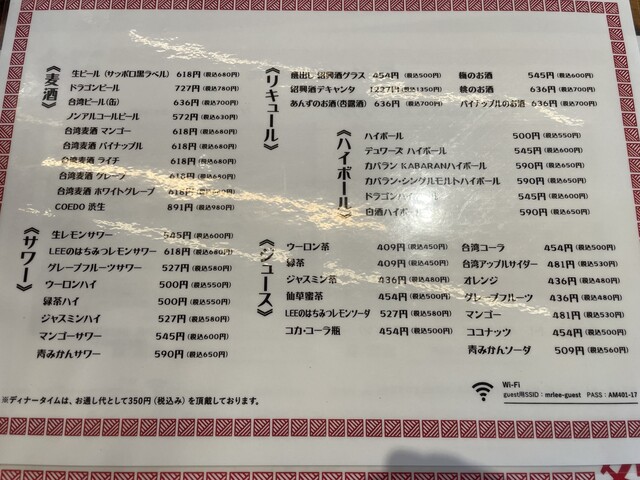 《麦酒》
生ビール (サッポロ黒ラベル) 618円 (税込680円)
ドラゴンビール 727円 (税込780円)
台湾ビール(缶) 636円 (税込700円)
ノンアルコールビール 572円 (税込630円)
台湾麦酒 マンゴー 618円 (税込680円)
台湾麦酒 パイナップル 618円 (税込680円)
台湾麦酒 ライチ 618円 (税込680円)
台湾麦酒 グレープ 618円 (税込680円)
台湾麦酒 ホワイトグレープ 618円
COEDO 渋生 891円 (税込980円)
《サワー》
生レモンサワー 545円 (税込600円)
LEEのはちみつレモンサワー 618円 (税込680円)
グレープフルーツサワー 527円 (税込580円)
ウーロンハイ 500円 (税込550円)
緑茶ハイ 500円 (税込550円)
ジャスミンハイ 527円 (税込580円)
マンゴーサワー 545円 (税込600円)
青みかんサワー 590円 (税込650円)
《リキュール》
甕出し 紹興酒グラス 454円 (税込500円)
紹興酒デキャンタ 1227円 (税込1350円)
あんずのお酒(杏露酒) 636円 (税込700円)
梅のお酒 545円 (税込600円)
桃のお酒 636円 (税込700円)
パイナップルのお酒 636円 (税込700円)
《ハイボール》
ハイボール 500円 (税込550円)
デュワーズ ハイボール 545円 (税込600円)
カバラン KABARANハイボール 590円 (税込650円)
カバラン・シングルモルトハイボール 590円 (税込650円)
ドラゴンハイボール 545円 (税込600円)
白酒ハイボール 590円 (税込650円)
《ジュース》
ウーロン茶 409円 (税込450円)
緑茶 409円 (税込450円)
ジャスミン茶 436円 (税込480円)
仙草蜜茶 454円 (税込500円)
LEEのはちみつレモンソーダ 527円 (税込580円)
コカ・コーラ瓶 454円 (税込500円)
台湾コーラ 454円 (税込500円)
台湾アップルサイダー 481円 (税込530円)
オレンジ 436円 (税込480円)
グレープフルーツ 436円 (税込480円)
マンゴー 481円 (税込530円)
ココナッツ 454円 (税込500円)
青みかんソーダ 509円 (税込560円)
※ディナータイムは、お通し代として350円 (税込み) を頂戴しております。
Wi-Fi
guest用SSID：mrlee-guest PASS：AM401-17